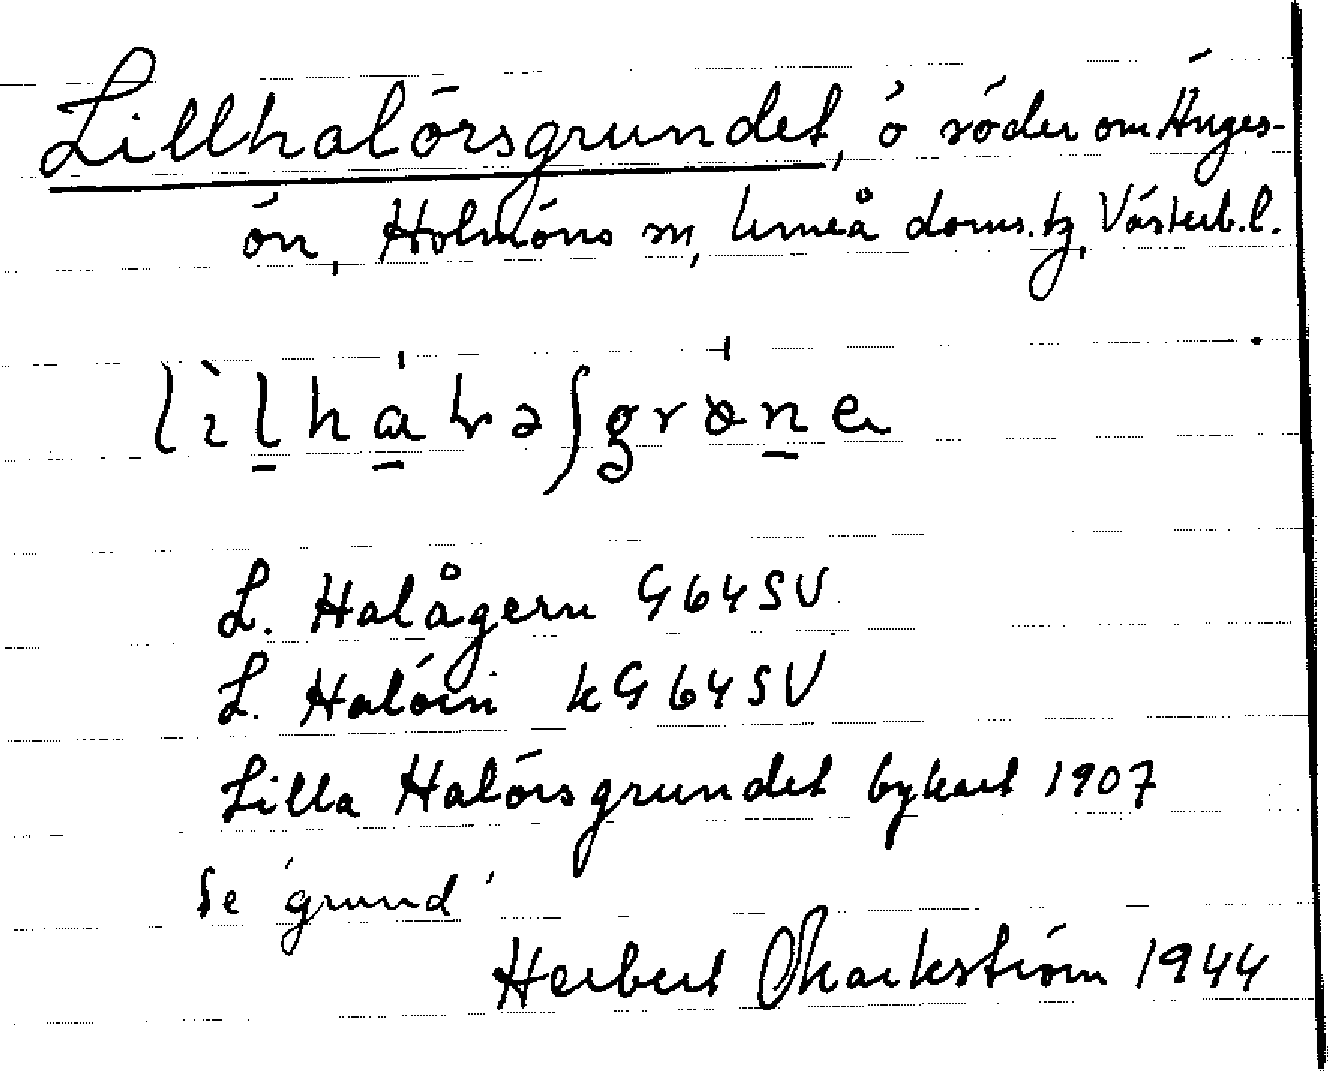 Lillhalörsgrundet, ö söder om Änges-
ön, Holmöns sn, Umeå doms. tg, Västerb. l.
L. Halågern G 64 SV
L. Halörn kG 64 SV
Lilla Halörsgrundet bykart 1907
Se 'grund'
Herbert Markström 1944